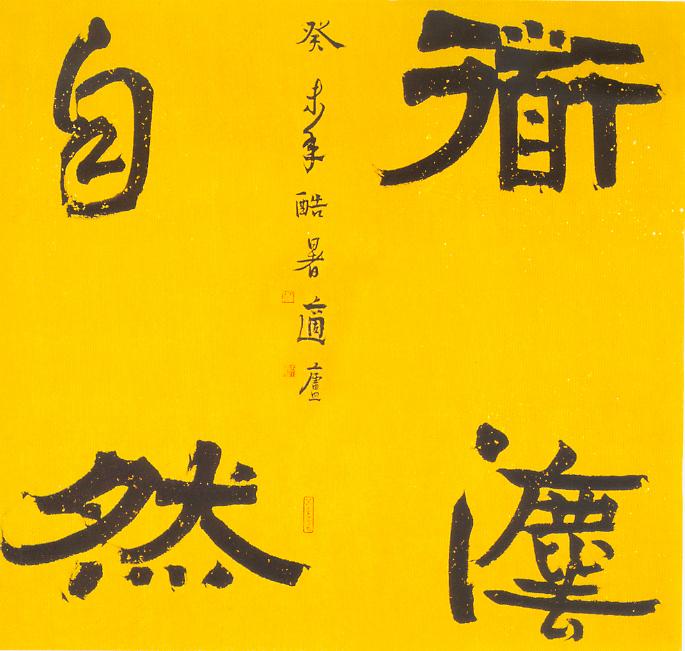 衟灋
自然
癸未年酷暑適廬